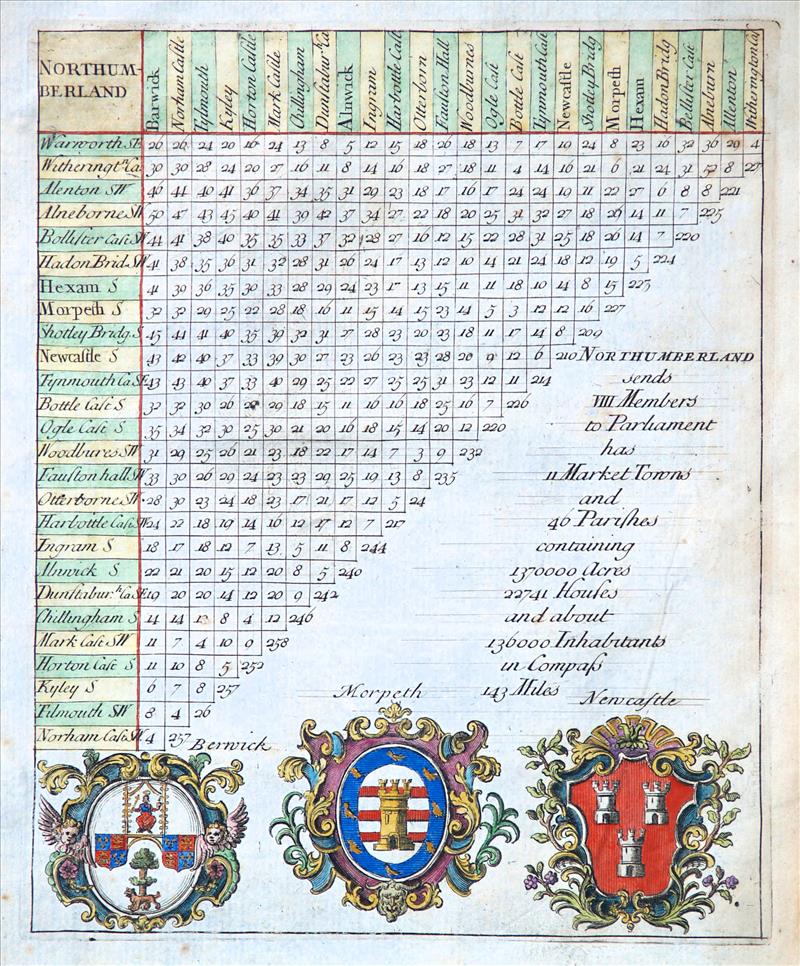 NORTHUM-
BERLAND
Barwick
Norham Castle
Tylmouth
Kyley
Horton Castle
Mark Castle
Chillingham
Dunstabur.h Ca
Alnwick
Ingram
Harbottle Cast
Otterborn
Fauston Hall
Woodburnes
Ogle Cast
Bottle Cast
Tynmouth Cast
Newcastle
Shotley Bridg
Morpeth
Hexam
Hadon Bridg
Bellister Cast
Alneburn
Allenton
Witherington Cas
Warworth SE 26 26 24 20 16 24 13 8 5 12 15 18 26 18 13 7 17 19 24 8 23 16 32 36 29 4
Witheringt.n Ca 30 30 28 24 20 27 16 11 8 14 16 18 27 18 11 4 14 16 21 6 21 24 31 52 8 227
Alenton SW 46 44 40 41 36 37 34 35 31 29 23 18 17 16 17 24 24 19 11 22 27 6 8 8 221
Alneborne SW 50 47 43 45 40 41 39 42 37 34 27 22 18 20 25 31 32 27 18 26 14 11 7 225
Bollister Case SW 44 41 38 40 35 35 33 37 32 28 27 16 12 15 22 28 31 25 18 26 14 7 220
Hadon Brid SW 41 38 35 36 31 32 28 31 26 24 17 13 12 10 14 21 24 18 12 19 5 224
Hexam S 41 39 36 35 30 33 28 29 24 23 17 13 15 11 11 18 10 14 8 15 223
Morpeth S 32 32 29 25 22 28 18 16 11 15 14 15 23 14 5 3 12 12 16 227
Shotley Bridg S 45 44 41 40 35 39 32 31 27 28 23 20 23 18 11 17 14 8 209
Newcastle S 43 42 40 37 33 39 30 27 23 26 23 23 28 20 9 12 6 210
Tynmouth Ca SE 43 43 40 37 33 40 29 25 22 27 25 25 31 23 12 11 214
Bottle Case S 32 32 30 26 22 29 18 15 11 16 16 18 25 16 7 226
Ogle Case S 35 34 32 30 25 30 21 20 16 18 15 14 20 12 220
Woodbures SW 31 29 25 26 21 23 18 22 17 14 7 3 9 232
Fauston hall SW 33 30 26 29 24 23 23 29 25 19 13 8 235
Otterborne SW 28 30 23 24 18 23 17 21 17 12 5 24
Harbottle Cas SW 24 22 18 19 14 16 12 17 12 7 217
Ingram S 18 17 18 12 7 13 5 11 8 244
Alnwick S 22 21 20 15 12 20 8 5 240
Dunstabur.h Ca SE 19 20 20 14 12 20 9 242
Chillingham S 14 14 13 8 4 12 246
Mark Case SW 11 7 4 10 9 258
Horton Case S 11 10 8 5 252
Kyley S 6 7 8 257
Tilmouth SW 8 4 26
Norham Cas SW 4 257
NORTHUMBERLAND
sends
VIII Members
to Parliament
has
11 Market Towns
and
46 Parishes
containing
1370000 Acres
22741 Houses
and about
136000 Inhabitants
in Compass
143 Miles
Berwick
Morpeth
Newcastle